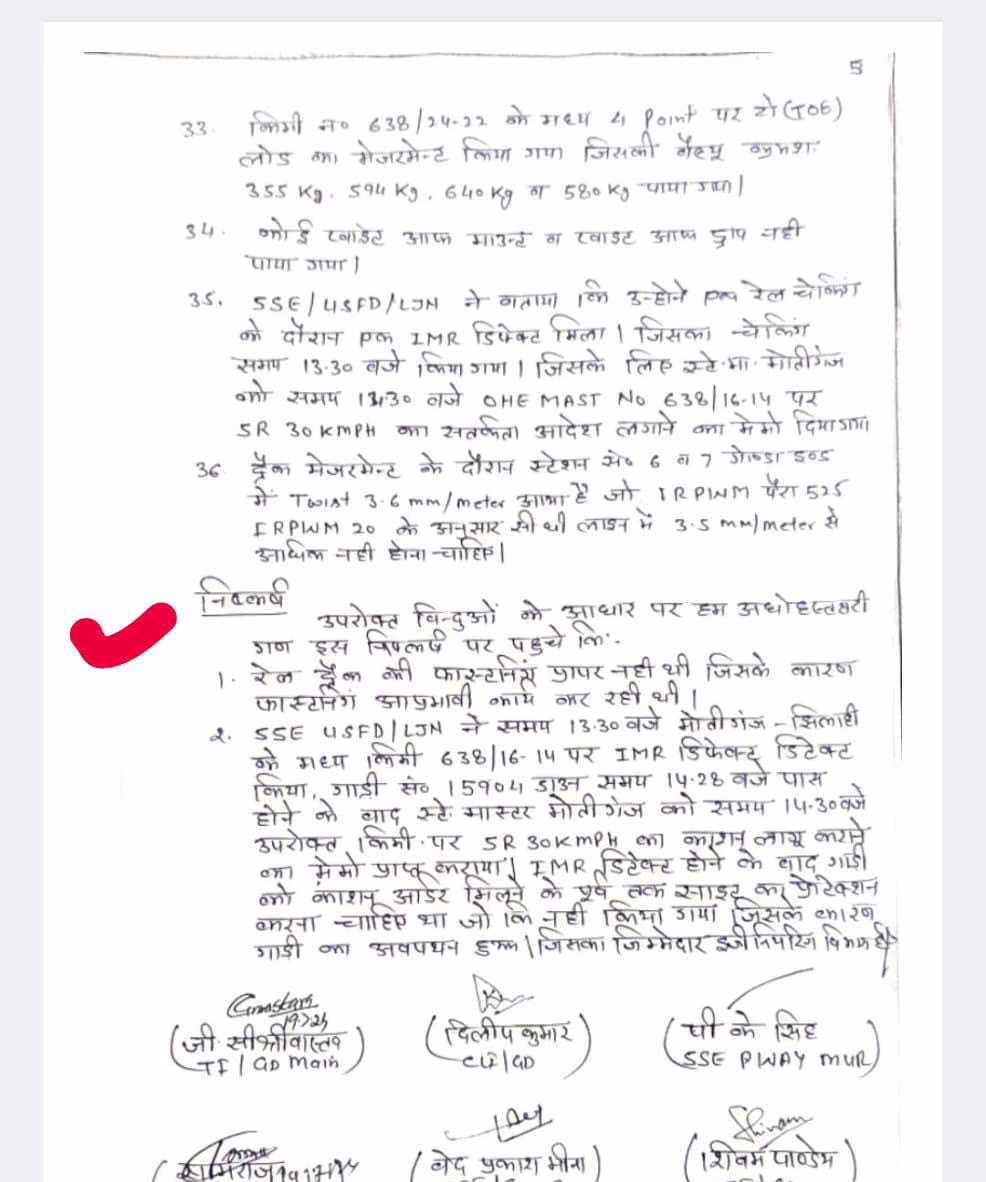 5
33. किमी न० 638/24-22 के मध्य 4 Point पर टो (TOE)
लोड का मेजरमेन्ट किया गया जिसकी वैल्यू क्रमशः
355 Kg, 594 Kg, 640 Kg व 580 Kg पाया गया|
34. कोई प्वाइंट आफ माउन्ट व प्वाइंट आफ ड्राप नही
पाया गया|
35. SSE/USFD/LJN ने बताया कि उन्होने रेल चेकिंग
के दौरान एक IMR डिफेक्ट मिला| जिसका चेकिंग
समय 13.30 बजे किया गया| जिसके लिए स्टे.मा. मोतीगंज
को समय बजे OHE MAST No 638/16-14 पर
SR 30 KMPH का सतर्कता आदेश लगाने का मेमो दिया गया
36. ट्रैक मेजरमेन्ट के दौरान स्टेशन सं० 6 व 7 गोण्डा इन्ड
में Twist 3.6 mm/meter आया है जो IRPWM पैरा 525
IRPWM 20 के अनुसार सीधी लाइन में 3.5 mm/meter से
अधिक नही होना चाहिए|
निष्कर्ष
उपरोक्त विन्दुओं के आधार पर हम अधोहस्ताक्षरी
गण इस निष्कर्ष पर पहुचे कि:-
1. रेल ट्रैक की फास्टनिंग प्रापर नही थी जिसके कारण
फास्टनिंग अप्रभावी कार्य कर रही थी|
2. SSE USFD/LJN ने समय 13.30 बजे मोतीगंज - झिलाही
के मध्य किमी 638/16-14 पर IMR डिफेक्ट डिटेक्ट
किया, गाड़ी सं० 15904 डाउन समय 14.28 बजे पास
होने के बाद स्टे. मास्टर मोतीगंज को समय 14.30 बजे
उपरोक्त किमी. पर SR 30 KMPH का काशन लागू कराने
का मेमो प्राप्त कराया| IMR डिटेक्ट होने के बाद गाड़ी
को काशन आर्डर मिलने के पूर्व तक साइट का प्रोटेक्शन
करना चाहिए था जो कि नही किया गया जिसके कारण
गाड़ी का अवपथन हुआ| जिसका जिम्मेदार इंजीनियरिंग विभाग है|
(जी. सी. श्रीवास्तव (दिलीप कुमार) (पी के सिंह
TI/GD Main) CLI/GD SSE P/WAY MUR)
Shivam
(वेद प्रकाश मीना) (शिवम पाण्डेय)